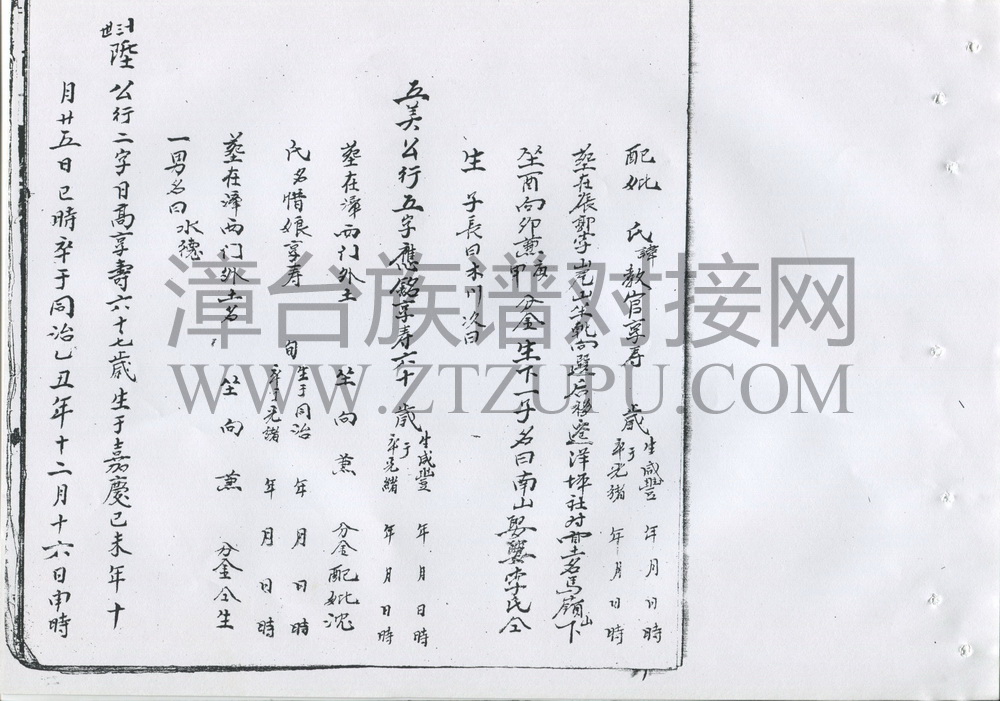 配妣 氏諱教官享寿 歲生于咸豐 年 月 日 時卒光緒 年 月 日 時
塟在張郭李山 后移遷洋坪社对面土名馬嶺山下
坐酉向卯兼庚甲 分金生下一子名曰南山娶 李氏仝
生 子長曰木川 次曰
五美公行五字應銘享寿六十 歲生咸豐 年 月 日 時卒于光緒 年 月 日 時
塟在漳西门外土 坐 向 兼 分金配妣沈
氏名惜娘享寿 旬生于同治 年 月 日 時卒于光緒 年 月 日 時
塟在漳西门外土名 坐 向 兼 分金仝生
一男名曰水德
廿三世陞公行二字日高享壽六十七歲生于嘉慶己未年十
月廿五日巳時卒于同治乙丑年十二月十六日申時
漳台族谱对接网
WWW.ZTZUPU.COM